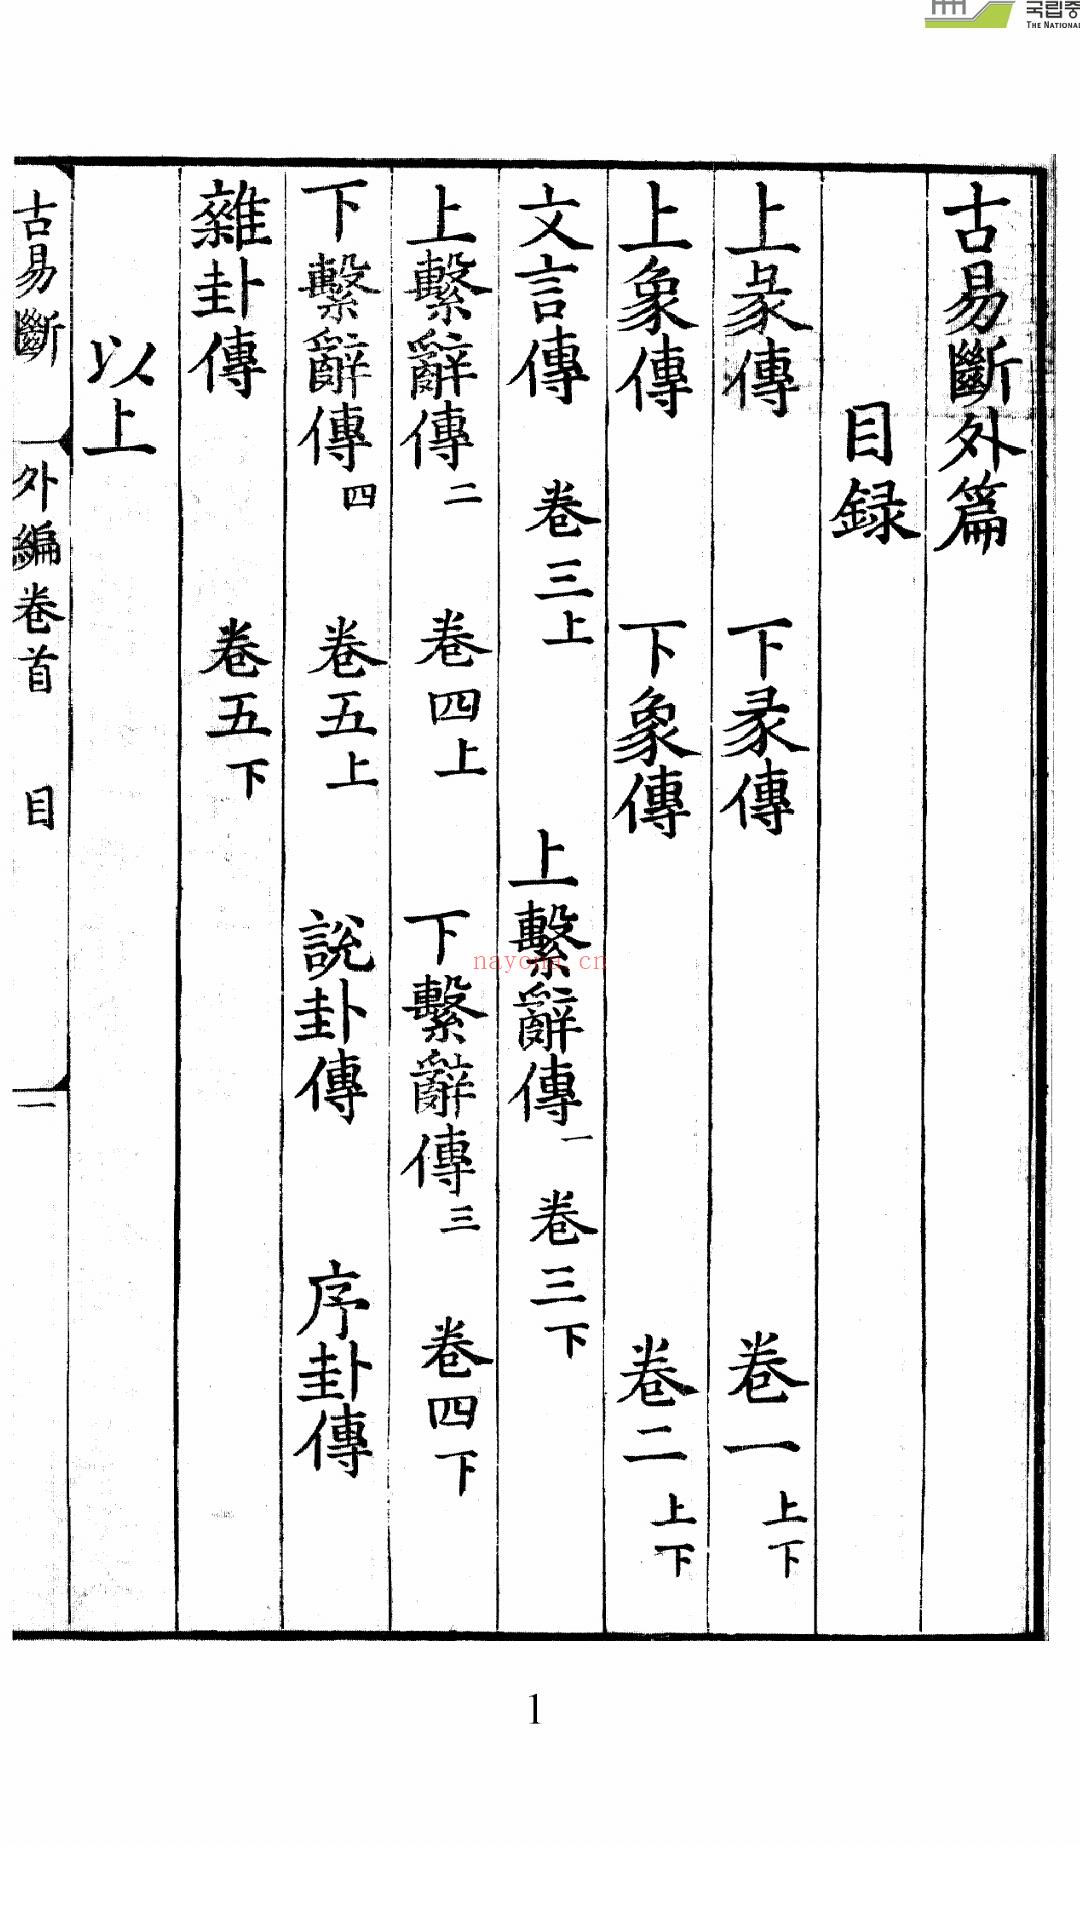 국립중
THE NATIONAL
古易斷外篇
目録
上彖傳 下彖傳 卷一 上下
上象傳 下象傳 卷二 上下
文言傳 卷三上 上繫辭傳一 卷三下
上繫辭傳二 卷四上 下繫辭傳三 卷四下
下繫辭傳四 卷五上 說卦傳 序卦傳
雜卦傳 卷五下
以上
古易斷 外編卷首 目 一
nayona.cn
1